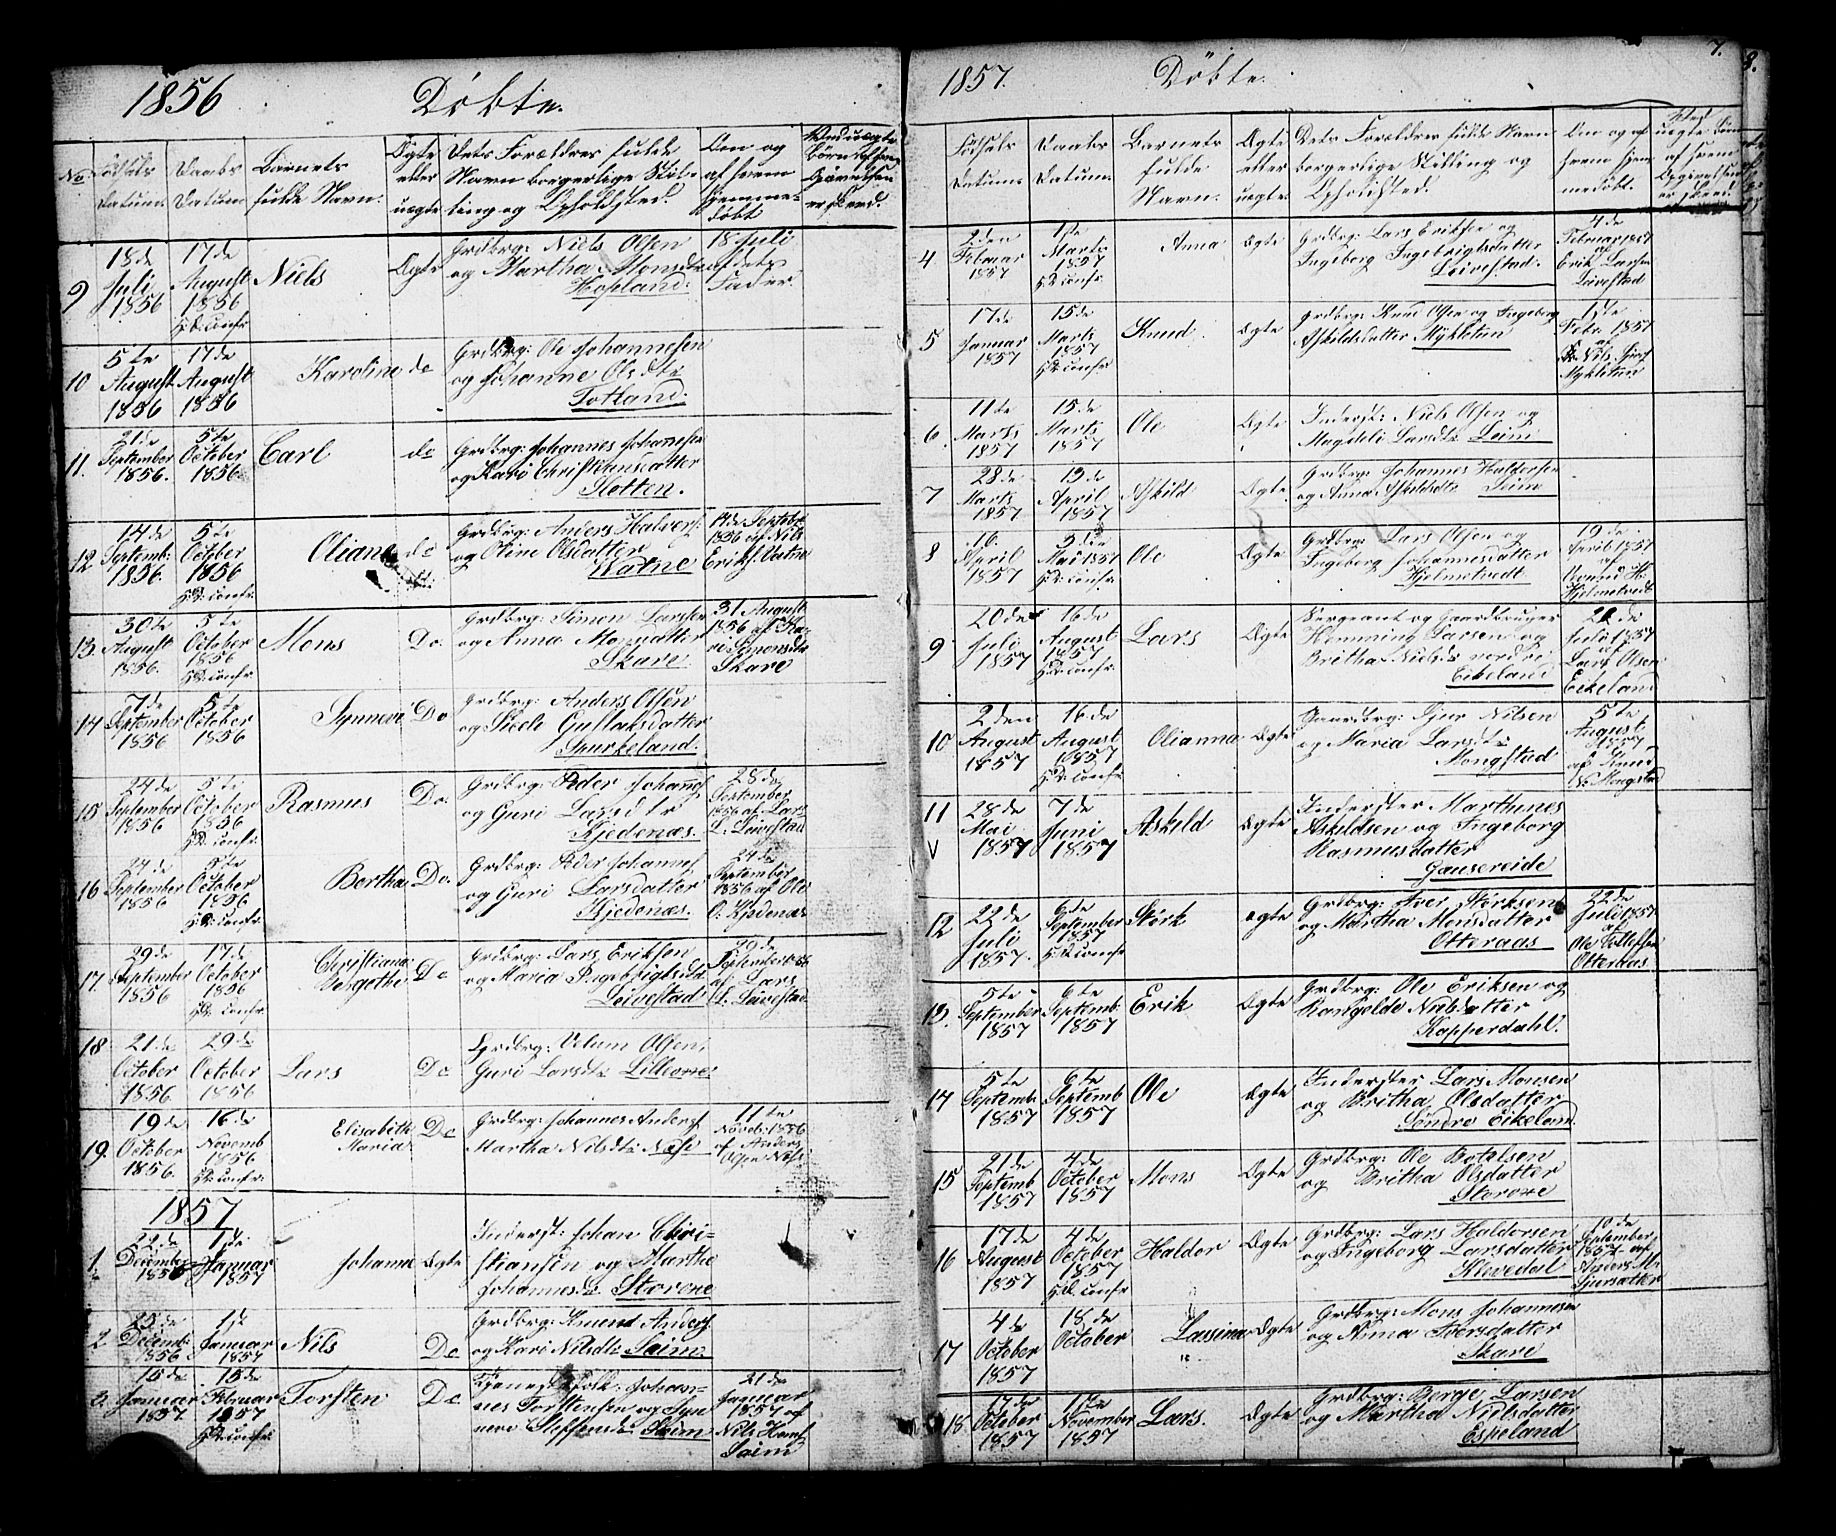 1856
Döbte.
No.
Fødsels Datum.
Daabs Datum
Barnets fulde Navn.
Ægte eller uægte
Dets Forældres fulde Navn borgerlige Stilling og Opholdsted.
Om og af hvem hjemmedöbt
9
18de Juli 1856
17de August 1856 Hd: Confr
Niels
Ægte
Grdbrg: Niels Olsen
og Martha Monsdtr
Hopland.
18 Juli af dets Fader.
10
5te August 1856
17de August 1856
Karoline
do
Grdbrg: Ole Johannesen
og Johanne Olsdtr
Totland.
11.
21de September 1856.
5te October 1856
Carl
do
Grdbrg: Johannes Johannesen
og Kari Christiansdatter
Sletten.
12
14de Septemb: 1856.
5te October 1856 Hd: Confr.
Oliane
do
Grdbrg: Anders Halvers:
og Oline Olsdatter
14de Septbr 1856 af Nils Eriks:
13.
30te August 1856.
5te October 1856 Hd: Confr
Mons
Do.
Grdbrg: Simon Larssen
og Anna Monsdatter
Skare.
31 August 1856 af Kari Simonsdtr Skare
14
7de September 1856
5te October 1856
Synneve
Do
Grdbrg: Anders Olsen
og Sisele Gustaksdatter
Spurkeland.
15
24de September 1856
5te October 1856 Hd: Confr:
Rasmus
Do.
Grdbrg: Peder Johannes
og Guri Larsdtr
Kjedenæs.
28de September 1856 af Lars L. Leivestad
16
24de September 1856
5te October 1856 Hd: Confr.
Bertha
Do.
Grdbrg: Peder Johannes
og Guri Larsdatter
Kjedenæs.
24de September 1856 af Ole O: Kjedenæs
17.
29de September 1856
17de October 1856 Hd: Confr.
Christiana
Do
Grdbrg: Lars Eriksen
og Maria
Leivestad
29de September 1856 af Lars L. Leivestad
18.
21de October 1856.
29de October 1856
Lars
Do
Grdbrg: Villum Olsen,
Guri Larsdtr Lilleone.
19.
19de October 1856.
16de Novemb 1856 Hd: Confr.
Elisabeth Maria
Do
Grdbrg: Johannes Anders:
Martha Nilsdtr Næse
11te Novb: 1856 af Anders Olsen Næse
1857
1.
22de December 1856
1de Januar 1857
Johanne
Ægte
Inderst: Johan Christiansen og Marthe
Johannesdtr Storone
2
25de Decemb: 1856
1ste Januar 1857
Nils
Do
Grdbrg: Knud Anders:
og Kari Nilsdtr Seim.
3.
15de Januar 1857
15de Februar 1857 Hd: Confr
Torsten
Do
Tjenestfolk: Johannes Torstensen og Synneve Steffensdtr Seim
21de Januar 1857 af Nils Hans: Seim
1857.
Döbte.
7.
8.
Fødsels Datum.
Daabs Datum.
Barnets fulde Navn.
Ægte eller uægte.
Dets Forældres fulde Navn borgerlige Stilling og Opholdsted.
Om og af hvem hjemmedöbt.
4
2den Februar 1857
1ste Marts 1857 Hd: Confr
Anna
Ægte
Grdbrg: Lars Eriksen og
Ingeborg Ingebrigtsdatter
Leivestad.
4de Februar 1857 af Erik Larsen Leivestad
5
17de Januar 1857
15de Marts 1857 Hd: Confr
Knud
Ægte
Grdbrg: Knud Olsen og Ingeborg
Askildsdatter Mykletun
1ste Febr. 1857 af Nils Mykletun
6.
11te Marts 1857
15de Marts 1857
Ole
Ægte
Inderst: Niels Olsen og
Magdeli Larsdtr Seim
7
28de Marts 1857
13de April 1857
Askild
Ægte
Grdbrg: Johannes Haldorsen
og Anna Askildsdtr Seim
8
16. April 1857
3die Mai 1857 Hd: Confr
Ole
Ægte
Grdbrg: Lars Olsen og
Ingeborg Johannesdatter
Hjelmetvedt
19de April 1857 af H: Hjelmetvedt
9
20de Juli 1857
16de August 1857 Hd: Confr.
Lars
Ægte
Sergeant og Gaardbruger
Hemming Larsen og
Britha Nielsdtr nordre
Eikeland
21de Juli 1857 af Lars Olsen Eikeland
10
2den August 1857
16de August 1857 Hd: Confr
Olianna
Ægte
Gaardbrg: Sjur Nilsen
og Maria Larsdtr
Mongstad
5te August 1857 af Knud N: Mongstad
11
V
28de Mai 1857
7de Juni 1857
Askeld
Ægte
Inderster Marthines
Askildsen og Ingeborg
Rasmusdatter
Gausereide
12
22de Juli 1857.
6te September 1857 Hd: Confr
Størk
Ægte
Grdbrg: Iver Størksen
og Martha Monsdatter
Otteraas
22de Juli 1857. af Ole Otteraas
13.
5te September 1857
6te Septemb. 1857
Erik
Ægte
Grdbrg: Ole Eriksen og
Rangelde Nilsdatter
Kopperdahl.
14
5te Septemb: 1857
6te Septemb 1857
Ole
Ægte
Inderster Lars Monsen
og Britha Olsdatter
Søndre Eikeland
15
21de Septemb 1857
4de October 1857
Mons
Ægte
Grdbrg: Ole Botolsen
og Britha Olsdatter
Storone
16
17de August 1857
4de October 1857 Hd: Confr
Haldor
Ægte
Grdbrg: Lars Haldorsen
og Ingeborg Larsdatter
Klevedal
10de September 1857 af Anders M: Sjursætter
17
4de October 1857
18de October
Lassine
Ægte
Grdbrg: Mons Johannesen
og Anna Iversdatter
Skare
18
17de October 1857
1ste November 1857
Lars.
Ægte
Grdbrg: Børge Larsen
og Martha Nielsdatter
Espeland